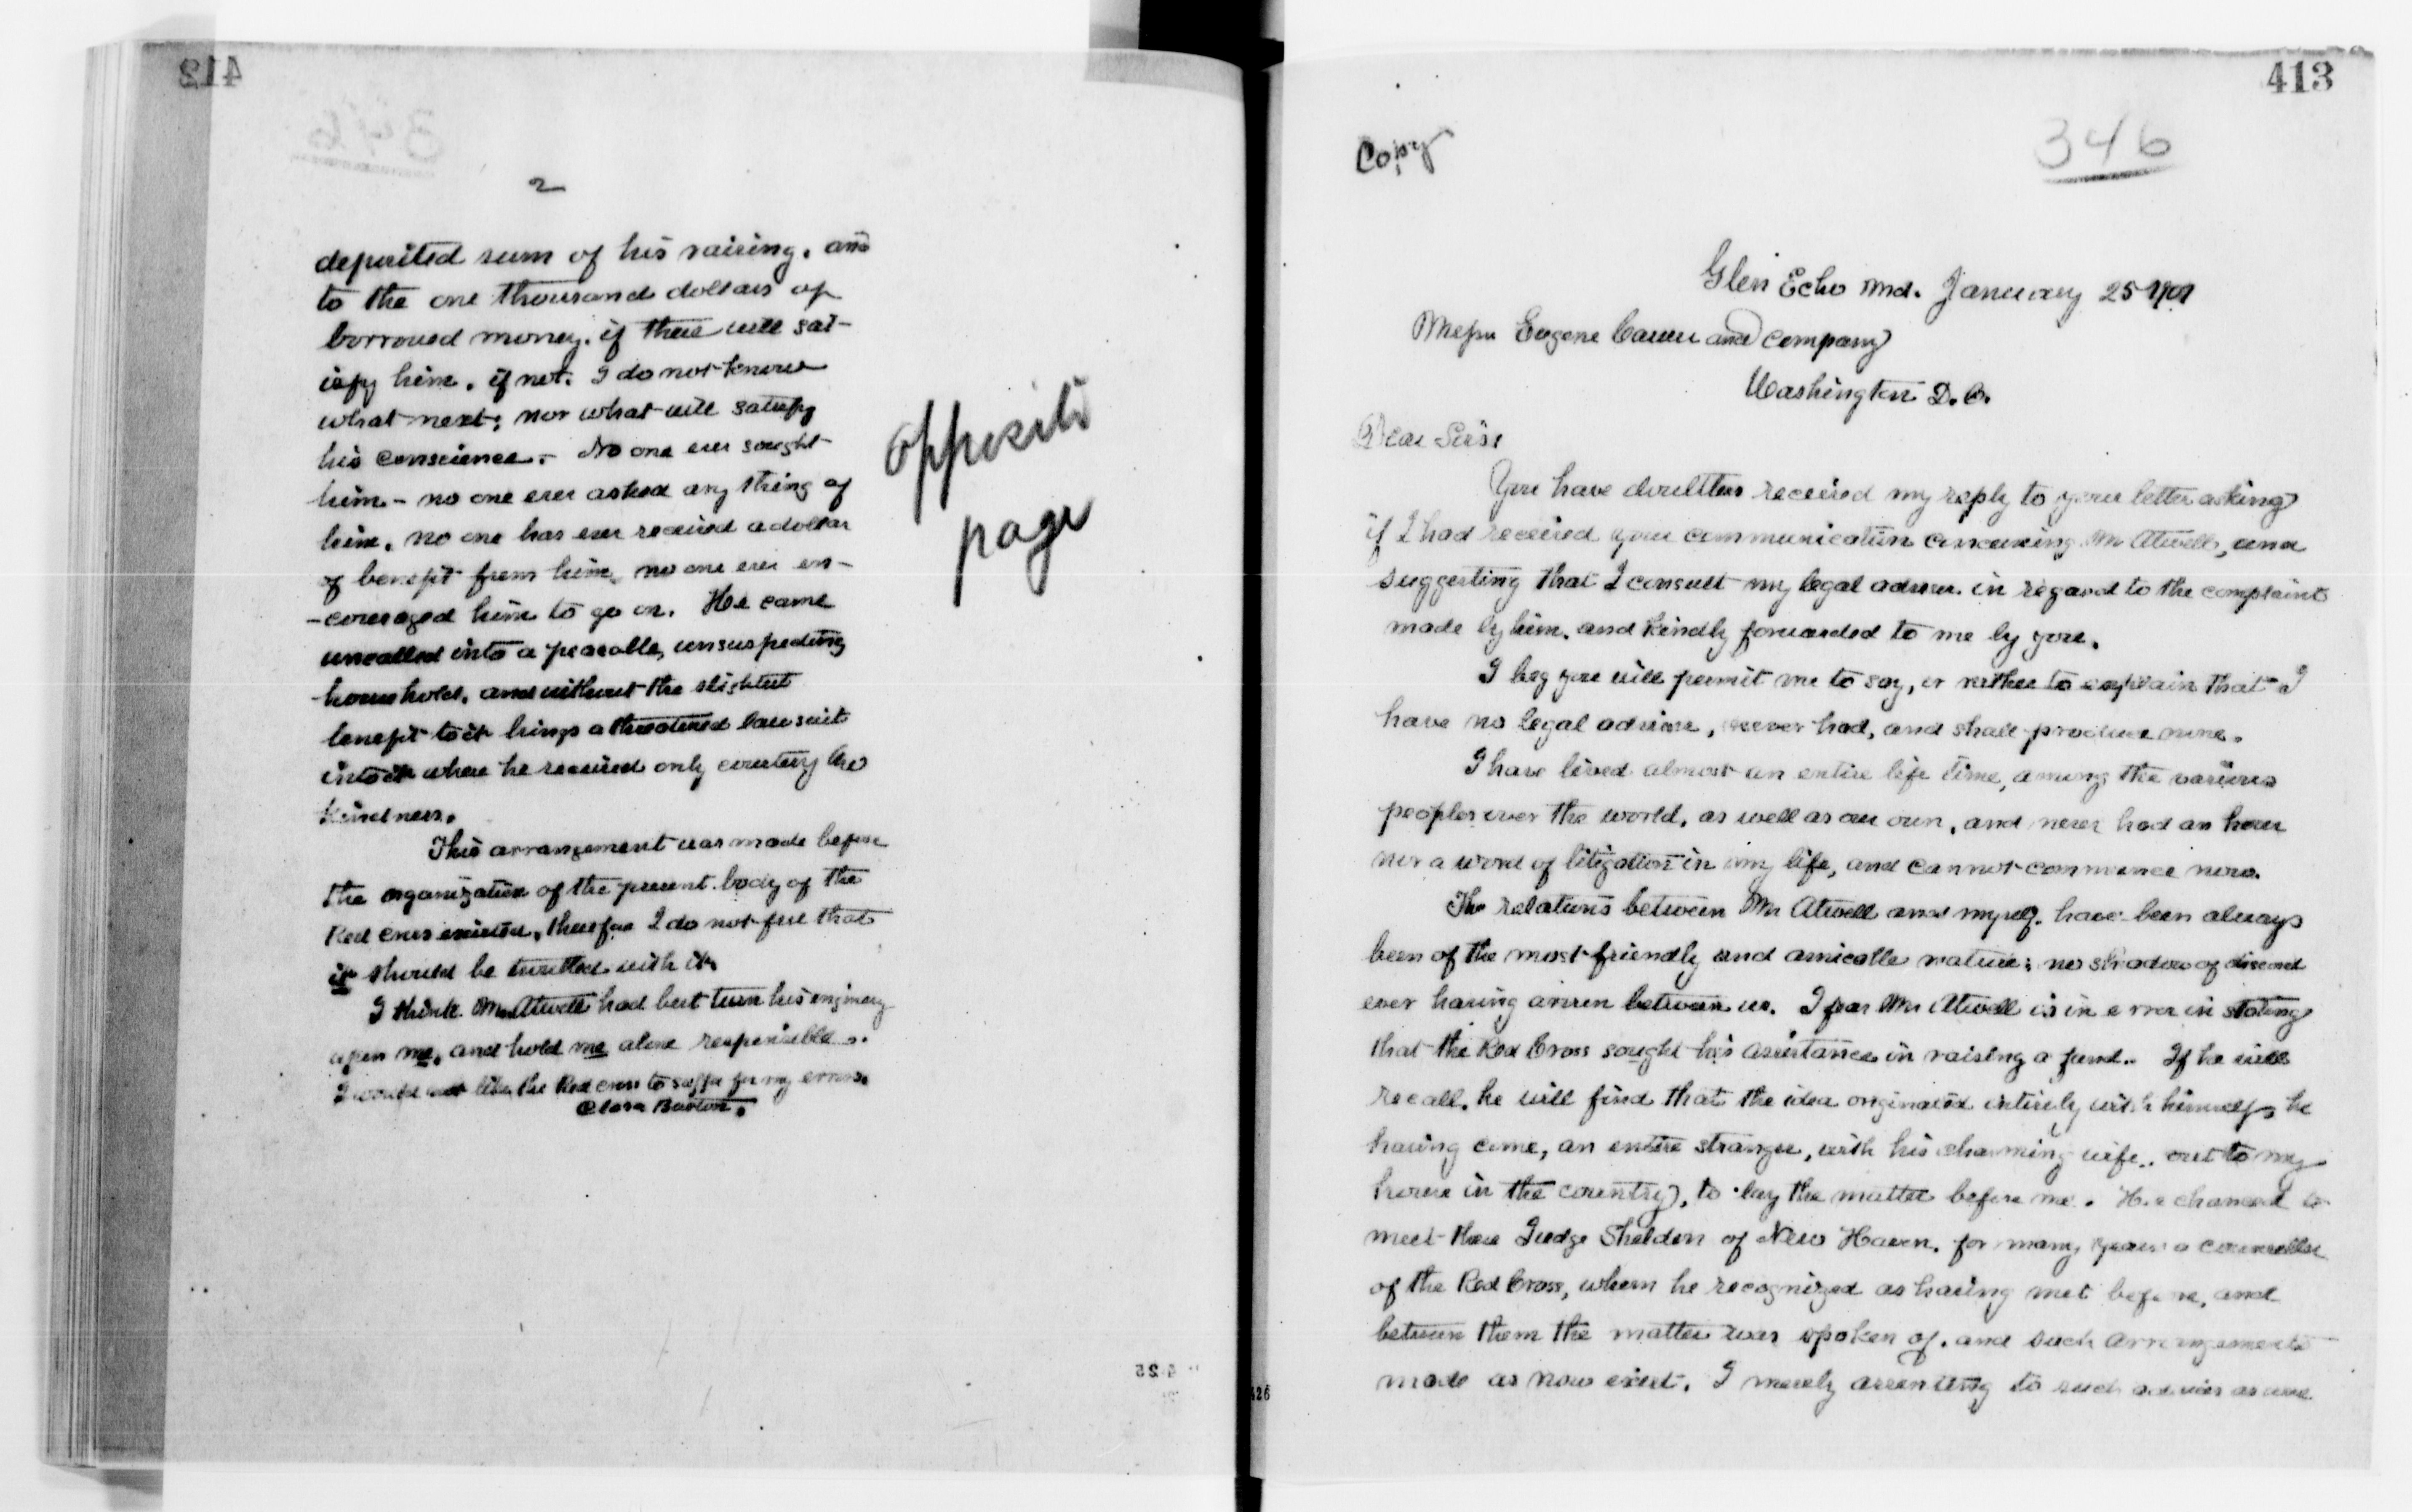 2
deposited sum of his raising. and
to the one thousand dollars of
borrowed money. if there will sat-
isfy him. if not. I do not know
what next; nor what will satisfy
his conscience. - No one ever sought
him - no one ever asked any thing of
him. no one has ever received a dollar
of benefit from him, no one ever en-
-couraged him to go on. He came
uncalled into a peacable, unsuspecting
household. and without the slightest
benefit to it brings a threatened law suit
into it where he received only courtesy and
kindness.
This arrangement was made before
the organization of the present body of the
Red Cross existed, therefore I do not feel that
it should be troubled with it.
I think Mr Atwell had best turn his enginery
upon me, and hold me alone responsible.
I would not like the Red Cross to suffer for my errors.
Clara Barton.
opposite
page
413
Copy
346
Glen Echo Md. January 25 1901
Messrs Eugene and Company
Washington D.C.
Dear Sirs:
You have doubtless received my reply to your letter asking
if I had received your communication concerning Mr Atwell, and
suggesting that I consult my legal adviser in regard to the complaint
made by him. and kindly forwarded to me by you.
I beg you will permit me to say, or rather to explain that I
have no legal adviser, never had, and shall produce none.
I have lived almost an entire life time, among the various
peoples over the world, as well as our own, and never had an hour
nor a word of litigation in my life, and cannot commence now.
The relations between Mr Atwell and myself. have been always
been of the most friendly and amicable nature; no shadow of discord
ever having arisen between us. I fear Mr Atwell is in error in stating
that the Red Cross sought his assistance in raising a fund.. If he will
recall, he will find that the idea originated entirely with himself, he
having come, an entire stranger, with his charming wife.. out to my
home in the country, to lay the matter before me. He chanced to
meet there Judge Sheldon of New Haven, for many years a counsellor
of the Red Cross, whom he recognized as having met before, and
between them the matter was spoken of. and such arrangements
made as now exist. I merely assenting to such advices as were
412